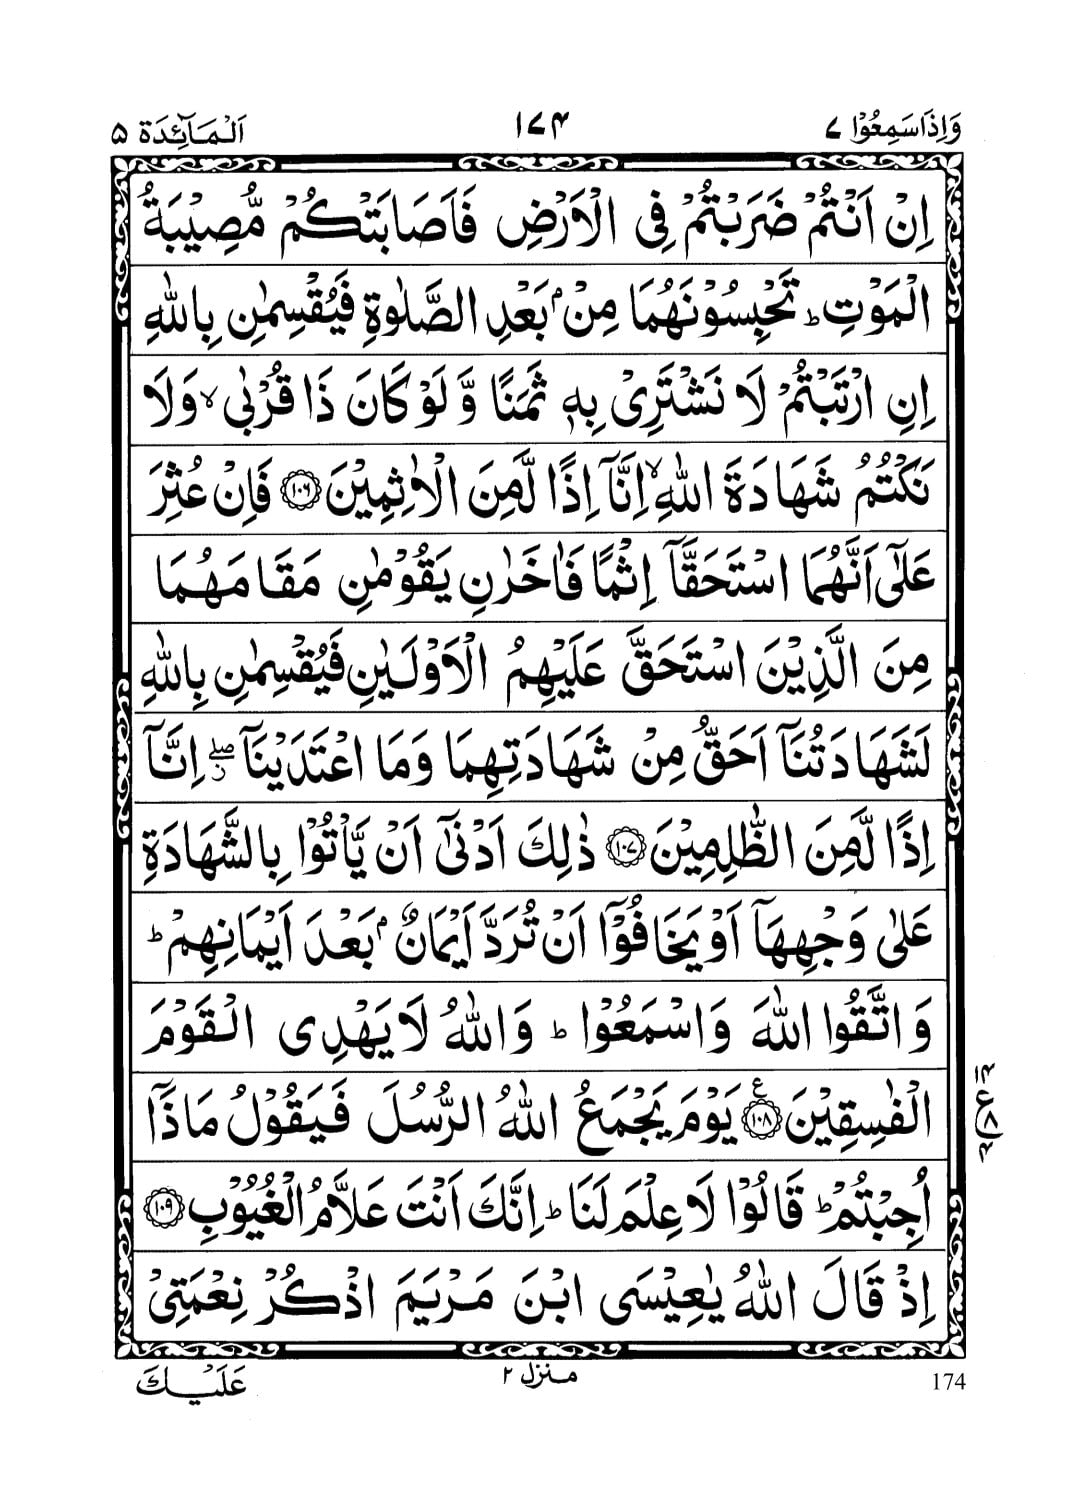 وَاِذَاسَمِعُوْا ٧
١٧٤
اَلْمَآئِدَة ٥
اِنْ اَنْتُمْ ضَرَبْتُمْ فِى الْاَرْضِ فَاَصَابَتْكُمْ مُّصِيْبَةُ
الْمَوْتِ ؕ تَحْبِسُوْنَهُمَا مِنْۢ بَعْدِ الصَّلٰوةِ فَيُقْسِمٰنِ بِاللّٰهِ
اِنِ ارْتَبْتُمْ لَا نَشْتَرِىْ بِهٖ ثَمَنًا وَّ لَوْ كَانَ ذَا قُرْبٰى ۙ وَلَا
نَكْتُمُ شَهَادَةَ اللّٰهِ ۙ اِنَّاۤ اِذًا لَّمِنَ الْاٰثِمِيْنَ ﴿١٠٦﴾ فَاِنْ عُثِرَ
عَلٰٓى اَنَّهُمَا اسْتَحَقَّاۤ اِثْمًا فَاٰخَرٰنِ يَقُوْمٰنِ مَقَامَهُمَا
مِنَ الَّذِيْنَ اسْتَحَقَّ عَلَيْهِمُ الْاَوْلَيٰنِ فَيُقْسِمٰنِ بِاللّٰهِ
لَشَهَادَتُنَاۤ اَحَقُّ مِنْ شَهَادَتِهِمَا وَمَا اعْتَدَيْنَاۤ ۖ ز اِنَّاۤ
اِذًا لَّمِنَ الظّٰلِمِيْنَ ﴿١٠٧﴾ ذٰلِكَ اَدْنٰٓى اَنْ يَّاْتُوْا بِالشَّهَادَةِ
عَلٰى وَجْهِهَاۤ اَوْ يَخَافُوْۤا اَنْ تُرَدَّ اَيْمَانٌۢ بَعْدَ اَيْمَانِهِمْ ؕ
وَ اتَّقُوا اللّٰهَ وَاسْمَعُوْا ؕ وَاللّٰهُ لَا يَهْدِى الْقَوْمَ
الْفٰسِقِيْنَ ﴿١٠٨﴾ ع يَوْمَ يَجْمَعُ اللّٰهُ الرُّسُلَ فَيَقُوْلُ مَاذَاۤ
اُجِبْتُمْ ؕ قَالُوْا لَا عِلْمَ لَنَا ؕ اِنَّكَ اَنْتَ عَلَّامُ الْغُيُوْبِ ﴿١٠٩﴾
اِذْ قَالَ اللّٰهُ يٰعِيْسَى ابْنَ مَرْيَمَ اذْكُرْ نِعْمَتِىْ
١٤
ع ٨
٤
عَلَيْكَ
منزل ٢
174